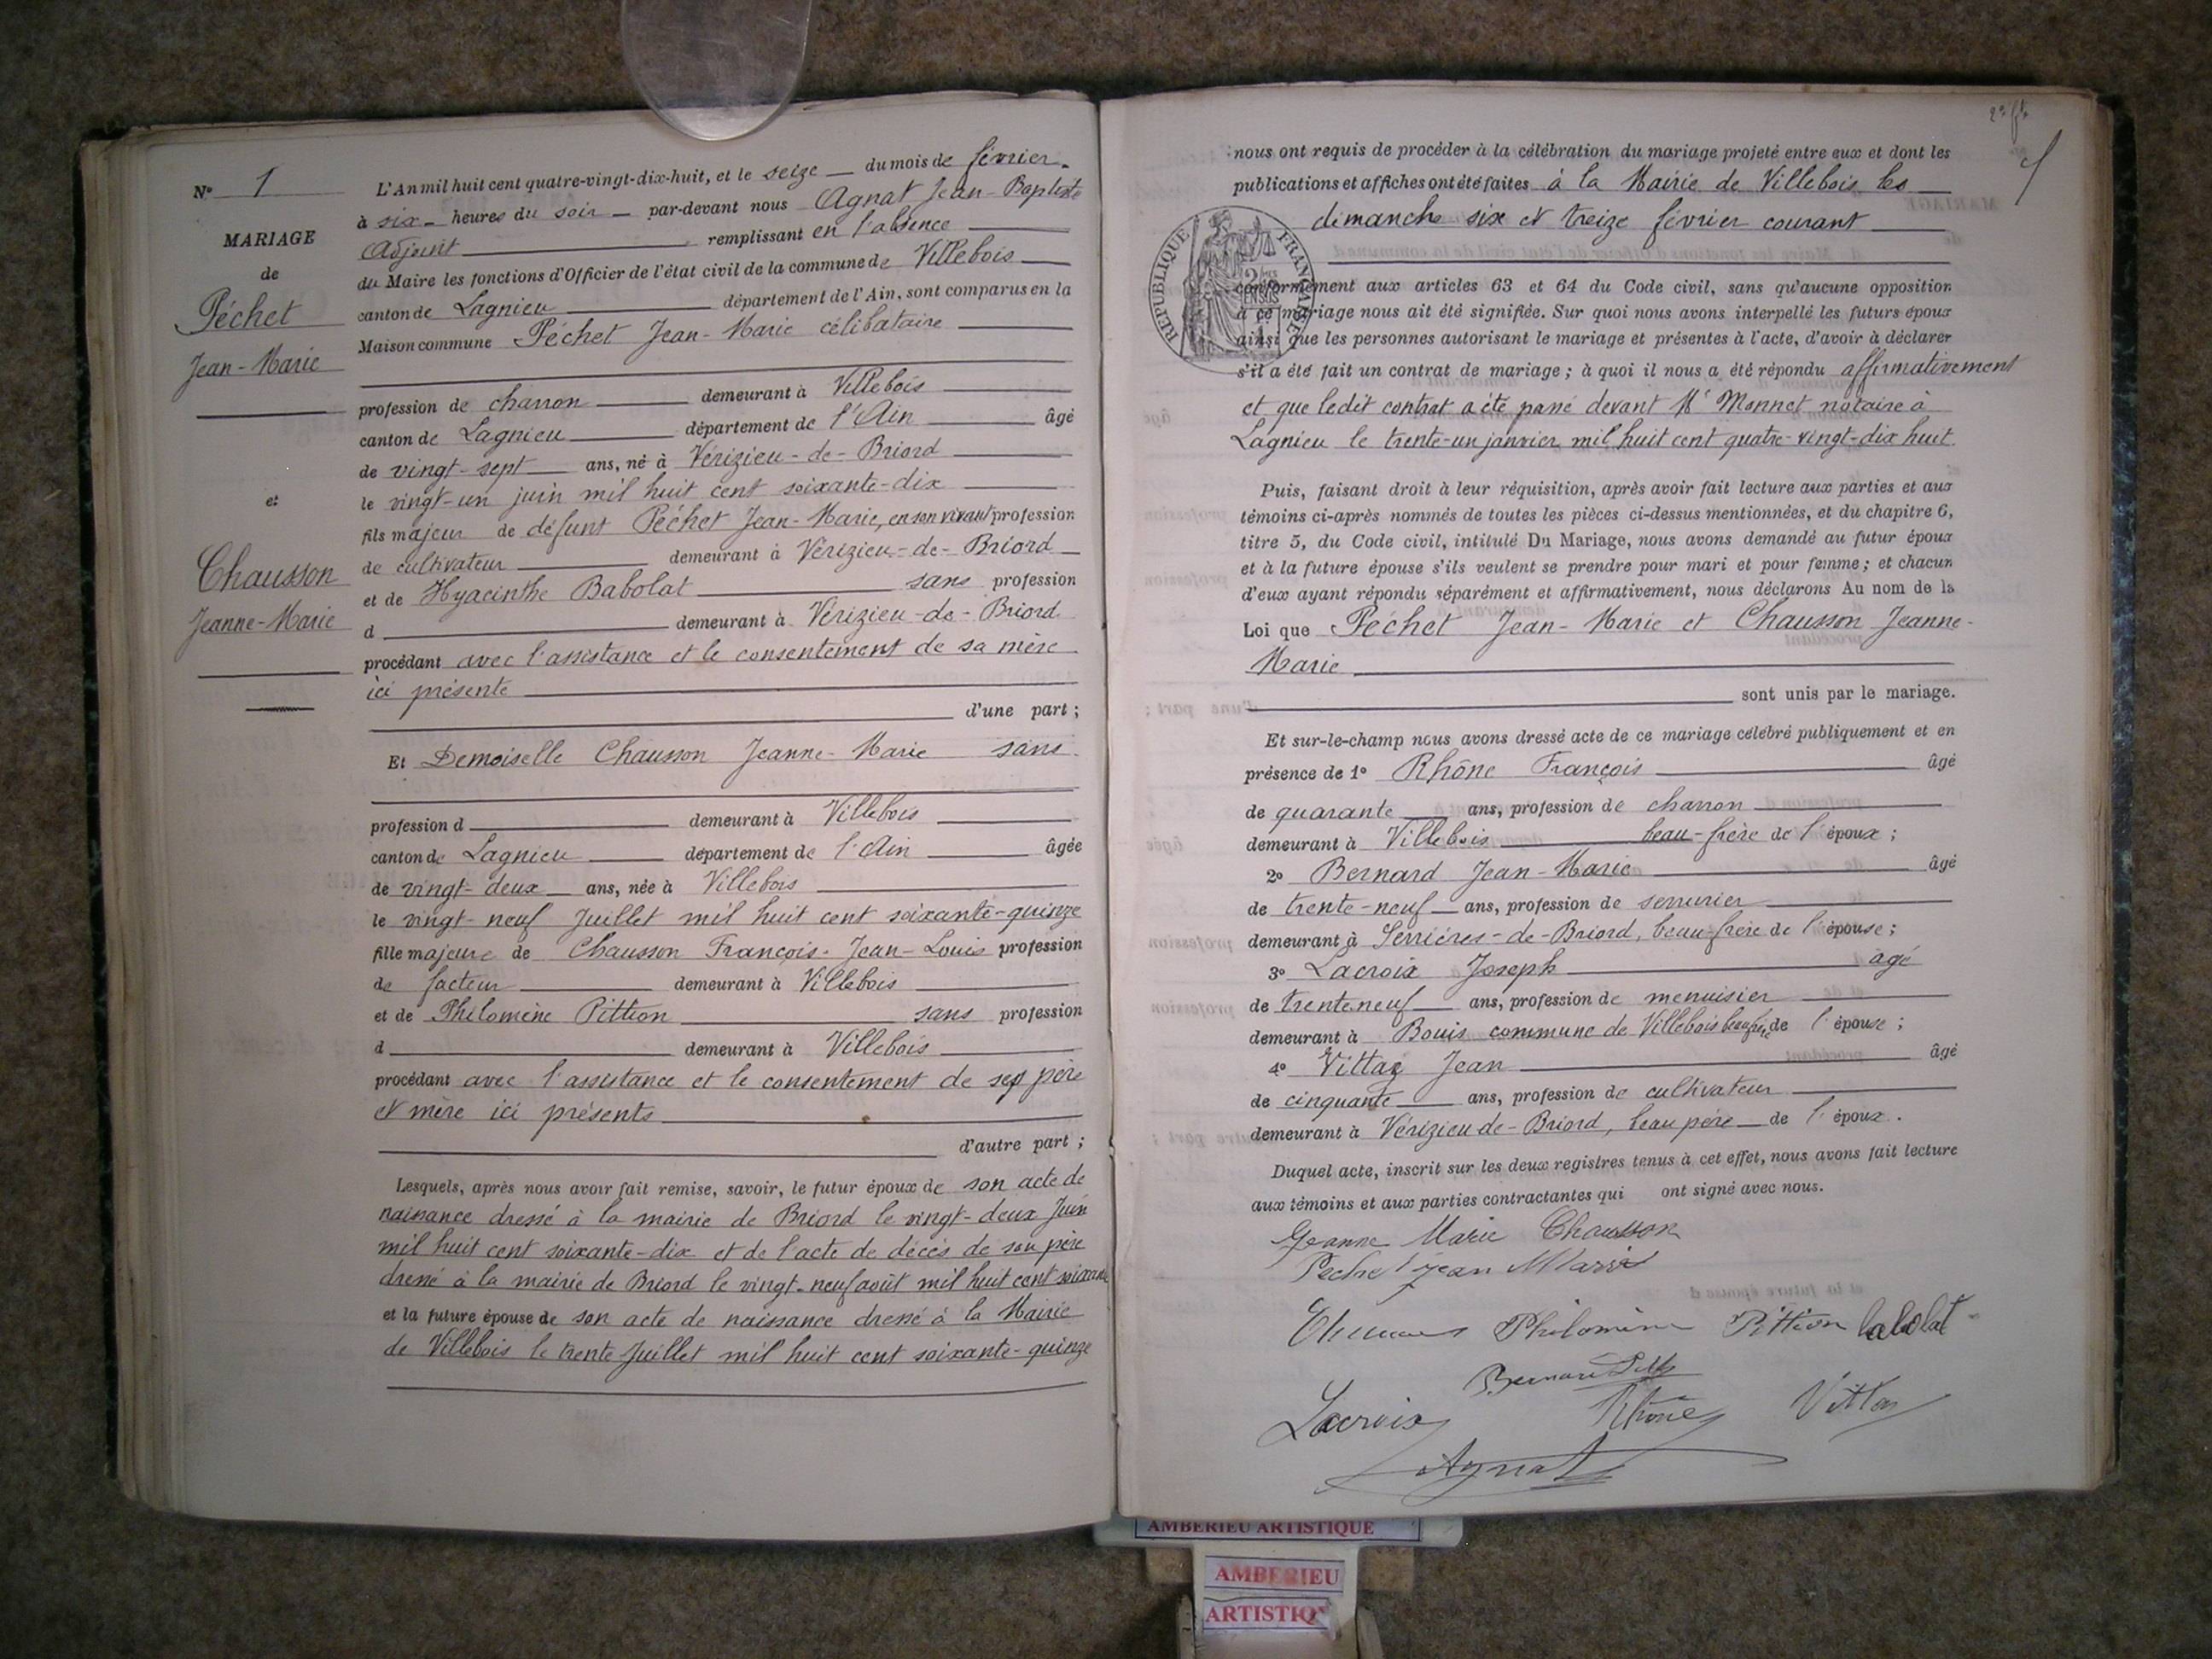 N° 1
MARIAGE
de
Péchet
Jean-Marie
et
Chausson
Jeanne-Marie
L'An mil huit cent quatre-vingt-dix-huit, et le seize du mois de février
à six heures du soir par-devant nous Agnat Jean-Baptiste
Adjoint remplissant en l'absence
du Maire les fonctions d'Officier de l'état civil de la commune de Villebois
canton de Lagnieu département de l'Ain, sont comparus en la
Maison commune Péchet Jean-Marie célibataire
profession de charron demeurant à Villebois
canton de Lagnieu département de l'Ain âgé
de vingt-sept ans, né à Vérizieu-de-Briord
le vingt-un juin mil huit cent soixante-dix
fils majeur de défunt Péchet Jean-Marie, en son vivant profession
de cultivateur demeurant à Vérizieu-de-Briord
et de Hyacinthe Babolat sans profession
d demeurant à Vérizieu-de-Briord
procédant avec l'assistance et le consentement de sa mère
ici présente
d'une part ;
Et Demoiselle Chausson Jeanne-Marie sans
profession d demeurant à Villebois
canton de Lagnieu département de l'Ain âgée
de vingt-deux ans, née à Villebois
le vingt-neuf Juillet mil huit cent soixante-quinze
fille majeure de Chausson François-Jean-Louis profession
de facteur demeurant à Villebois
et de Philomène Pittion sans profession
d demeurant à Villebois
procédant avec l'assistance et le consentement de ses père
et mère ici présents
d'autre part ;
Lesquels, après nous avoir fait remise, savoir, le futur époux de son acte de
naissance dressé à la mairie de Briord le vingt-deux Juin
mil huit cent soixante-dix et de l'acte de décès de son père
dressé à la mairie de Briord le vingt-neuf août mil huit cent soixante
et la future épouse de son acte de naissance dressé à la Mairie
de Villebois le trente Juillet mil huit cent soixante-quinze
nous ont requis de procéder à la célébration du mariage projeté entre eux et dont les
publications et affiches ont été faites à la Mairie de Villebois les
dimanche six et treize février courant
RÉPUBLIQUE FRANÇAISE
2 MES
EN SUS
conformément aux articles 63 et 64 du Code civil, sans qu'aucune opposition
à ce mariage nous ait été signifiée. Sur quoi nous avons interpellé les futurs époux
ainsi que les personnes autorisant le mariage et présentes à l'acte, d'avoir à déclarer
s'il a été fait un contrat de mariage ; à quoi il nous a été répondu affirmativement
et que ledit contrat a été passé devant Me Monnet notaire à
Lagnieu le trente-un janvier mil huit cent quatre-vingt-dix huit.
Puis, faisant droit à leur réquisition, après avoir fait lecture aux parties et aux
témoins ci-après nommés de toutes les pièces ci-dessus mentionnées, et du chapitre 6,
titre 5, du Code civil, intitulé Du Mariage, nous avons demandé au futur époux
et à la future épouse s'ils veulent se prendre pour mari et pour femme ; et chacun
d'eux ayant répondu séparément et affirmativement, nous déclarons Au nom de la
Loi que Péchet Jean-Marie et Chausson Jeanne-
Marie
sont unis par le mariage.
Et sur-le-champ nous avons dressé acte de ce mariage célébré publiquement et en
présence de 1° Rhône François âgé
de quarante ans, profession de charron
demeurant à Villebois beau-frère de l'époux ;
2° Bernard Jean-Marie âgé
de trente-neuf ans, profession de serrurier
demeurant à Serrières-de-Briord, beau-frère de l'épouse ;
3° Lacroix Joseph âgé
de trente neuf ans, profession de menuisier
demeurant à Bouis commune de Villebois beau frère de l'épouse ;
4° Vittaz Jean âgé
de cinquante ans, profession de cultivateur
demeurant à Vérizieu de-Briord, beau père de l'époux.
Duquel acte, inscrit sur les deux registres tenus à cet effet, nous avons fait lecture
aux témoins et aux parties contractantes qui ont signé avec nous.
Jeanne Marie Chausson
Pechet Jean Marie
Philomène Pittion babolat
Bernard
Lacroix Rhône Vittaz
Agnat
AMBERIEU ARTISTIQUE
AMBERIEU
ARTISTIQ